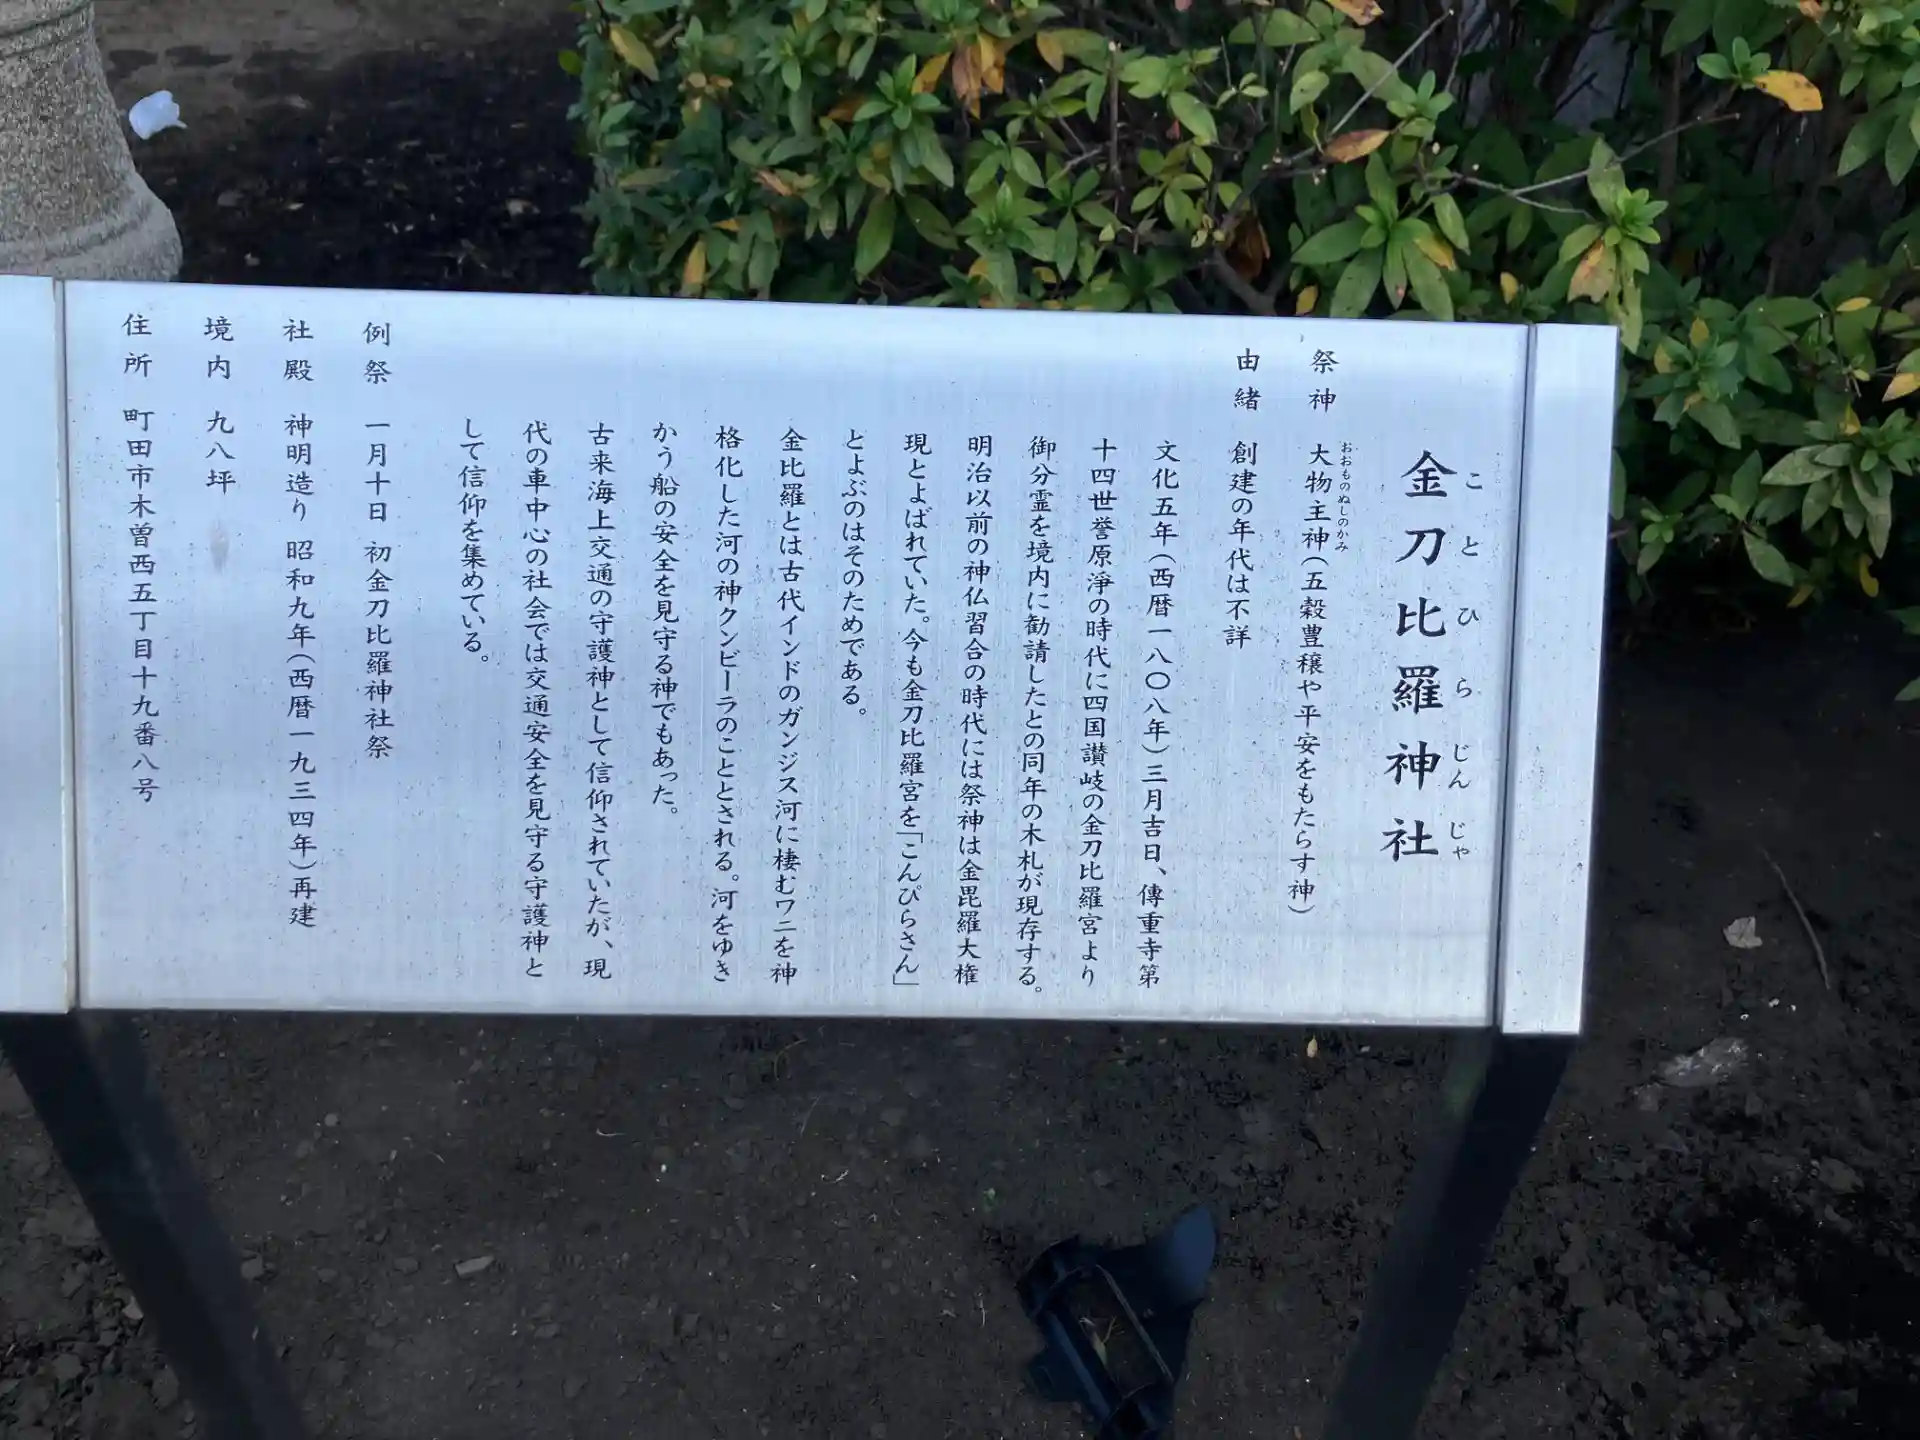 金刀比羅神社
ことひらじんじゃ
祭神 大物主神(五穀豊穣や平安をもたらす神)
おおものぬしのかみ
由緒 創建の年代は不詳
文化五年(西暦一八〇八年)三月吉日、傳重寺第
十四世誉原淨の時代に四国讃岐の金刀比羅宮より
御分霊を境内に勧請したとの同年の木札が現存する。
明治以前の神仏習合の時代には祭神は金毘羅大権
現とよばれていた。今も金刀比羅宮を「こんぴらさん」
とよぶのはそのためである。
金比羅とは古代インドのガンジス河に棲むワニを神
格化した河の神クンビーラのこととされる。河をゆき
かう船の安全を見守る神でもあった。
古来海上交通の守護神として信仰されていたが、現
代の車中心の社会では交通安全を見守る守護神と
して信仰を集めている。
例祭 一月十日 初金刀比羅神社祭
社殿 神明造り 昭和九年(西暦一九三四年)再建
境内 九八坪
住所 町田市木曽西五丁目十九番八号